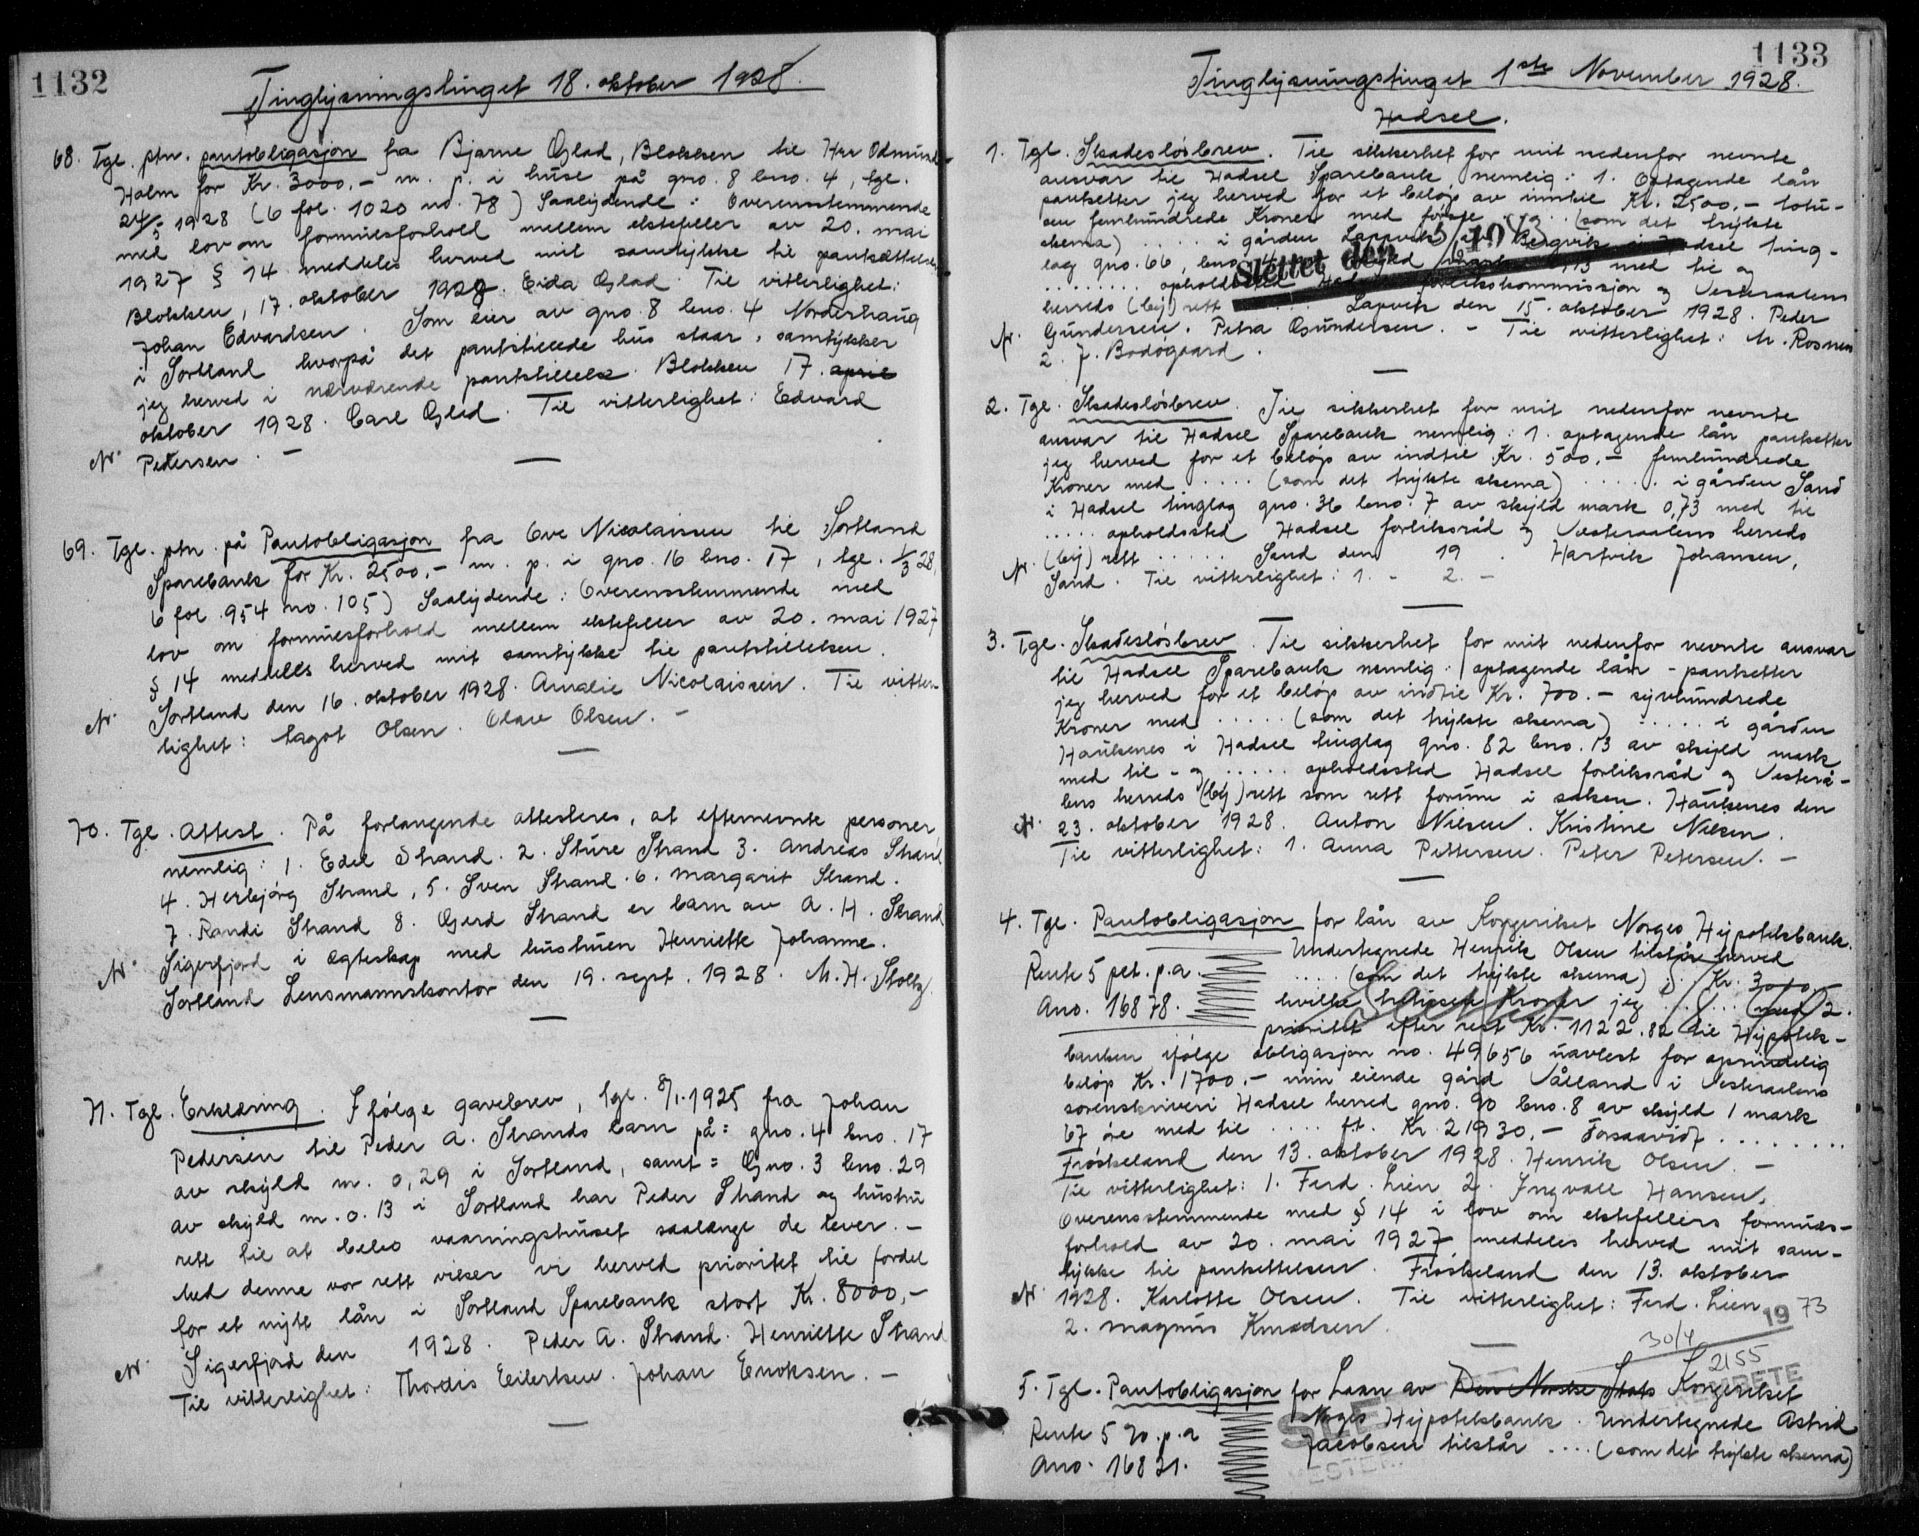 1132
Tinglysningstinget 18. oktober 1928.
68. Tgl. ptn. pantobligasjon fra Bjarne Glad, Blokken til Herr Odmund
Holm for Kr. 3000,- m. p. i huse på gno. 8 bno. 4, tgl.
24/5 1928 (6 fol. 1020 no. 78) Saalydende: Overensstemmende
med lov om formuesforhold mellem ektefeller av 20. mai
1927 § 14 meddeles herved mit samtykke til pantsættelsen
Blokken, 17. oktober 1928. Eida Glad. Til vitterlighet:
Johan Edvardsen. Som eier av gno. 8 bno. 4 Norderhaug
i Sortland hvorpå det pantstillede hus staar, samtykker
jeg herved i nærværende pantstillelse. Blokken 17. april
oktober 1928. Carl Glad. Til vitterlighet: Edvard
Petersen. -
69. Tgl. ptn. på Pantobligasjon fra Ove Nicolaissen til Sortland
Sparebank for Kr. 2500,- m. p. i gno. 16 bno. 17, tgl. 1/3 28,
6 fol. 954 no. 105) Saalydende: Overensstemmende med
lov om formuesforhold mellem ektefeller av 20. mai 1927
§ 14 meddeles herved mit samtykke til pantstillelsen.
Sortland den 16. oktober 1928. Amalie Nicolaissen. Til vitter-
lighet: Lagot Olsen. Olav Olsen. -
70. Tgl. Attest. På forlangende attesteres, at efternevnte personer
nemlig: 1. Edel Strand. 2. Sture Strand 3. Andreas Strand
4. Herbjörg Strand, 5. Sven Strand. 6. Margarit Strand.
7. Randi Strand 8. Gerd Strand er barn av A. H. Strand
Sigerfjord i ægteskap med hustruen Henriette Johanne.
Sortland Lensmannskontor den 19. sept. 1928. M. H. Stoltz.
71. Tgl. Erklæring. Ifølge gavebrev, tgl. 8/1-1925 fra Johan
Pedersen til Peder A. Strands barn på: gno. 4 bno. 17
av skyld m. 0,29 i Sortland, samt = Gno. 3 bno. 29
av skyld m. 0.13 i Sortland har Peder Strand og hustru
rett til at bebo vaaningshuset saalænge de lever. -
Med denne vor rett viker vi herved prioritet til fordel
for et nytt lån i Sortland Sparebank stort Kr. 8000,-
Sigerfjord den 1928. Peder A. Strand. Henriette Strand
Til vitterlighet: Thordis Eilertsen. Johan Enoksen. -
1133
Tinglysningstinget 1ste November 1928.
Hadsel.
1. Tgl. Skadesløsbrev. Til sikkerhet for mit nedenfor nevnte
ansvar til Hadsel Sparebank nemlig: 1. Optagende lån
pantsetter jeg herved for et beløp av inntil Kr. 2500,- totu-
sen femhundrede Kroner med første (som det trykte
skema) ..... i gården Lapvik Hadsel ting-
lag gno. 66, bno. med til og
........ opholdssted forlikskommissjon og Vesteraalens
herreds (by) rett Lapvik den 15. oktober 1928. Peder
Gundersen. Petra Gundersen. - Til vitterlighet: M. Rosnes
2. J. Bodøgaard.
Slettet den
2. Tgl. Skadesløsbrev. Til sikkerhet for mit nedenfor nevnte
ansvar til Hadsel Sparebank nemlig: 1. optagende lån pantsetter
jeg herved for et beløp av indtil Kr. 500,- femhundrede
Kroner med .... (som det trykte skema) ..... i gården Sand
i Hadsel tinglag gno. 36 bno. 7 av skyld mark 0,73 med til
..... opholdssted Hadsel forliksråd og Vesteraalens herreds
(by) rett ..... Sand den 19 . Hartvik Johansen,
Sand. Til vitterlighet: 1. - 2. -
3. Tgl. Skadesløsbrev. Til sikkerhet for mit nedenfor nevnte ansvar
til Hadsel Sparebank nemlig: optagende lån - pantsetter
jeg herved for et beløp av indtil Kr. 700.- syvhundrede
Kroner med ..... (som det trykte skema) ..... i gården
Haukenes i Hadsel tinglag gno. 82 bno. 13 av skyld mark
med til - og ..... opholdssted Hadsel forliksråd og Vesterå-
lens herreds (by) rett som rett forum i saken. Haukenes den
23. oktober 1928. Anton Nilsen. Kristine Nilsen.
Til vitterlighet: 1. Anna Pettersen. Peter Petersen. -
4. Tgl. Pantobligasjon for lån av Kongeriket Norges Hypotekbank.
Undertegnede Henrik Olsen tilstår herved
Rente 5 pct. p.a. .... (som det trykte skema) Kr. 3000,-
Ano. 16878. hvilke tretusen Kroner jeg ..... (med 2.
prioritet efter rest Kr. 1122.82 til Hypotek-
banken ifølge obligasjon no. 49656 utstedt for oprindelig
beløp Kr. 1700.- min eiende gård Vålland i Vesteraalens
sorenskriveri Hadsel herred gno. 90 bno. 8 av skyld 1 mark
67 øre med til .... ft. Kr. 21930.- Forsaavidt ........
Frøskeland den 13. oktober 1928. Henrik Olsen. -
Til vitterlighet: 1. Ferd. Lien 2. Ingvall Hansen.
Overensstemmende med § 14 i lov om ektefellers formues-
forhold av 20. mai 1927 meddeles herved mit sam-
tykke til pantsettelsen. Frøskeland den 13. oktober
1928. Karlotte Olsen. Til vitterlighet: Ferd. Lien
2. Magnus Knudsen.
1973
30/4
2155
5. Tgl. Pantobligasjon for Laan av Den Norske Stats Kongeriket
Norges Hypotekbank. Undertegnede Astrid
Rente 5 % p.a Jacobsen tilstår .... (som det trykte skema)
Ano. 16821.